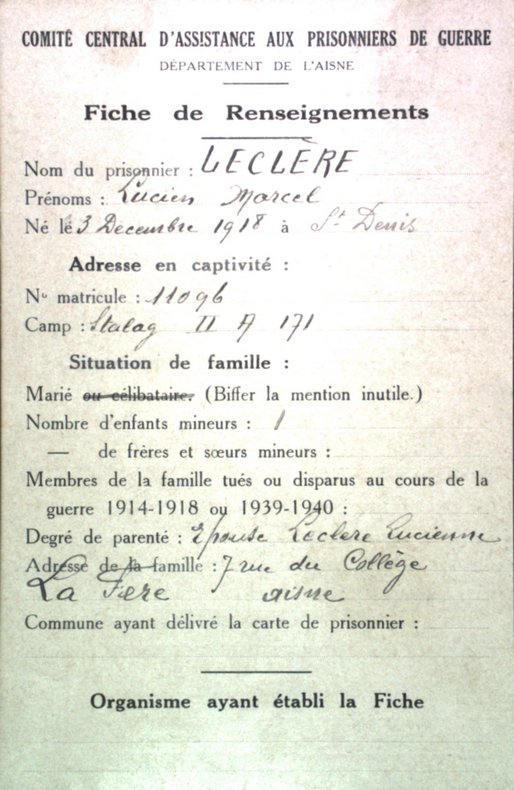 COMITÉ CENTRAL D'ASSISTANCE AUX PRISONNIERS DE GUERRE
DÉPARTEMENT DE L'AISNE
Fiche de Renseignements
Nom du prisonnier : LECLÈRE
Prénoms : Lucien Marcel
Né le 3 Decembre 1918 à St Denis
Adresse en captivité :
No matricule : 11096
Camp : Stalag II A 171
Situation de famille :
Marié ou célibataire. (Biffer la mention inutile.)
Nombre d'enfants mineurs : 1
— de frères et sœurs mineurs :
Membres de la famille tués ou disparus au cours de la
guerre 1914-1918 ou 1939-1940 :
Degré de parenté : Epouse Leclere Lucienne
Adresse de la famille : 7 rue du Collège
La Fère aisne
Commune ayant délivré la carte de prisonnier :
Organisme ayant établi la Fiche